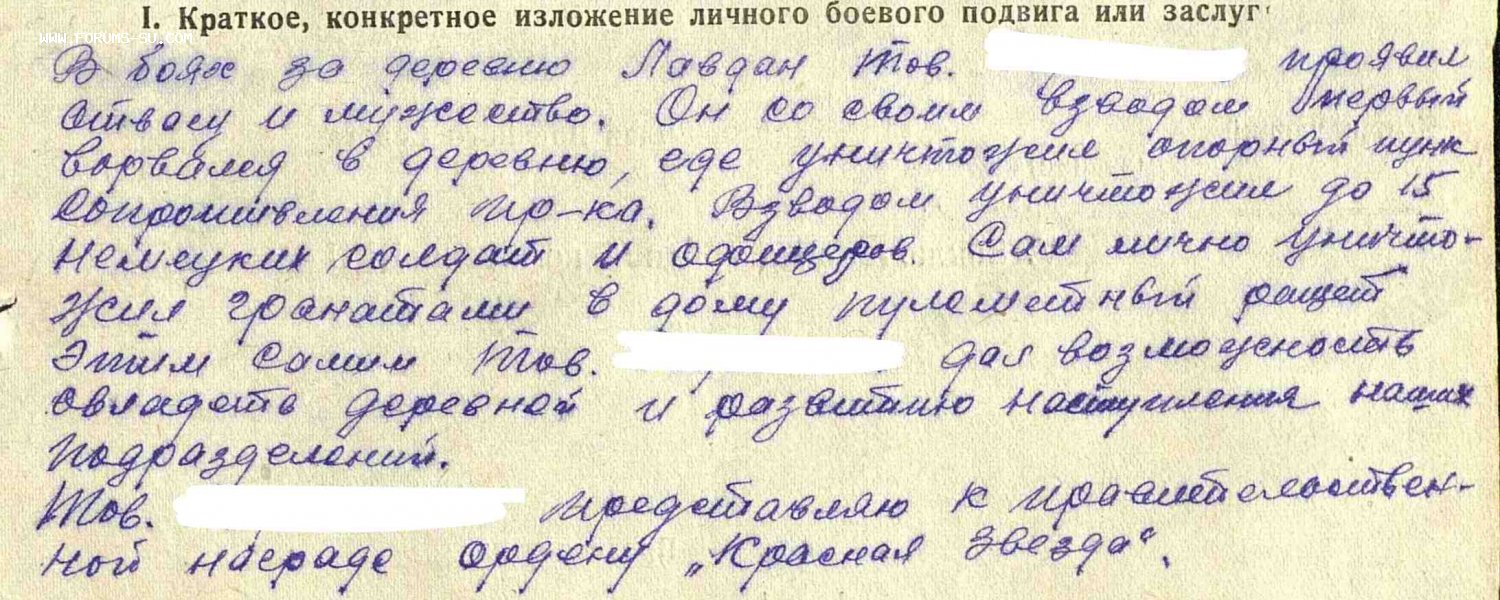 I. Краткое, конкретное изложение личного боевого подвига или заслуг
WWW.FORUMS-SU.COM
В боях за деревню Лавдан тов. проявил
отвагу и мужество. Он со своим взводом первый
ворвался в деревню, где уничтожил опорный пунк
сопротивления пр-ка. Взводом уничтожил до 15
немецких солдат и офицеров. Сам лично уничто-
жил гранатами в дому пулеметный ращет
Этим самим тов. дал возможность
овладеть деревней и развитию наступления наших
подразделений.
Тов. представляю к правительствен-
ной награде ордену „Красная Звезда".